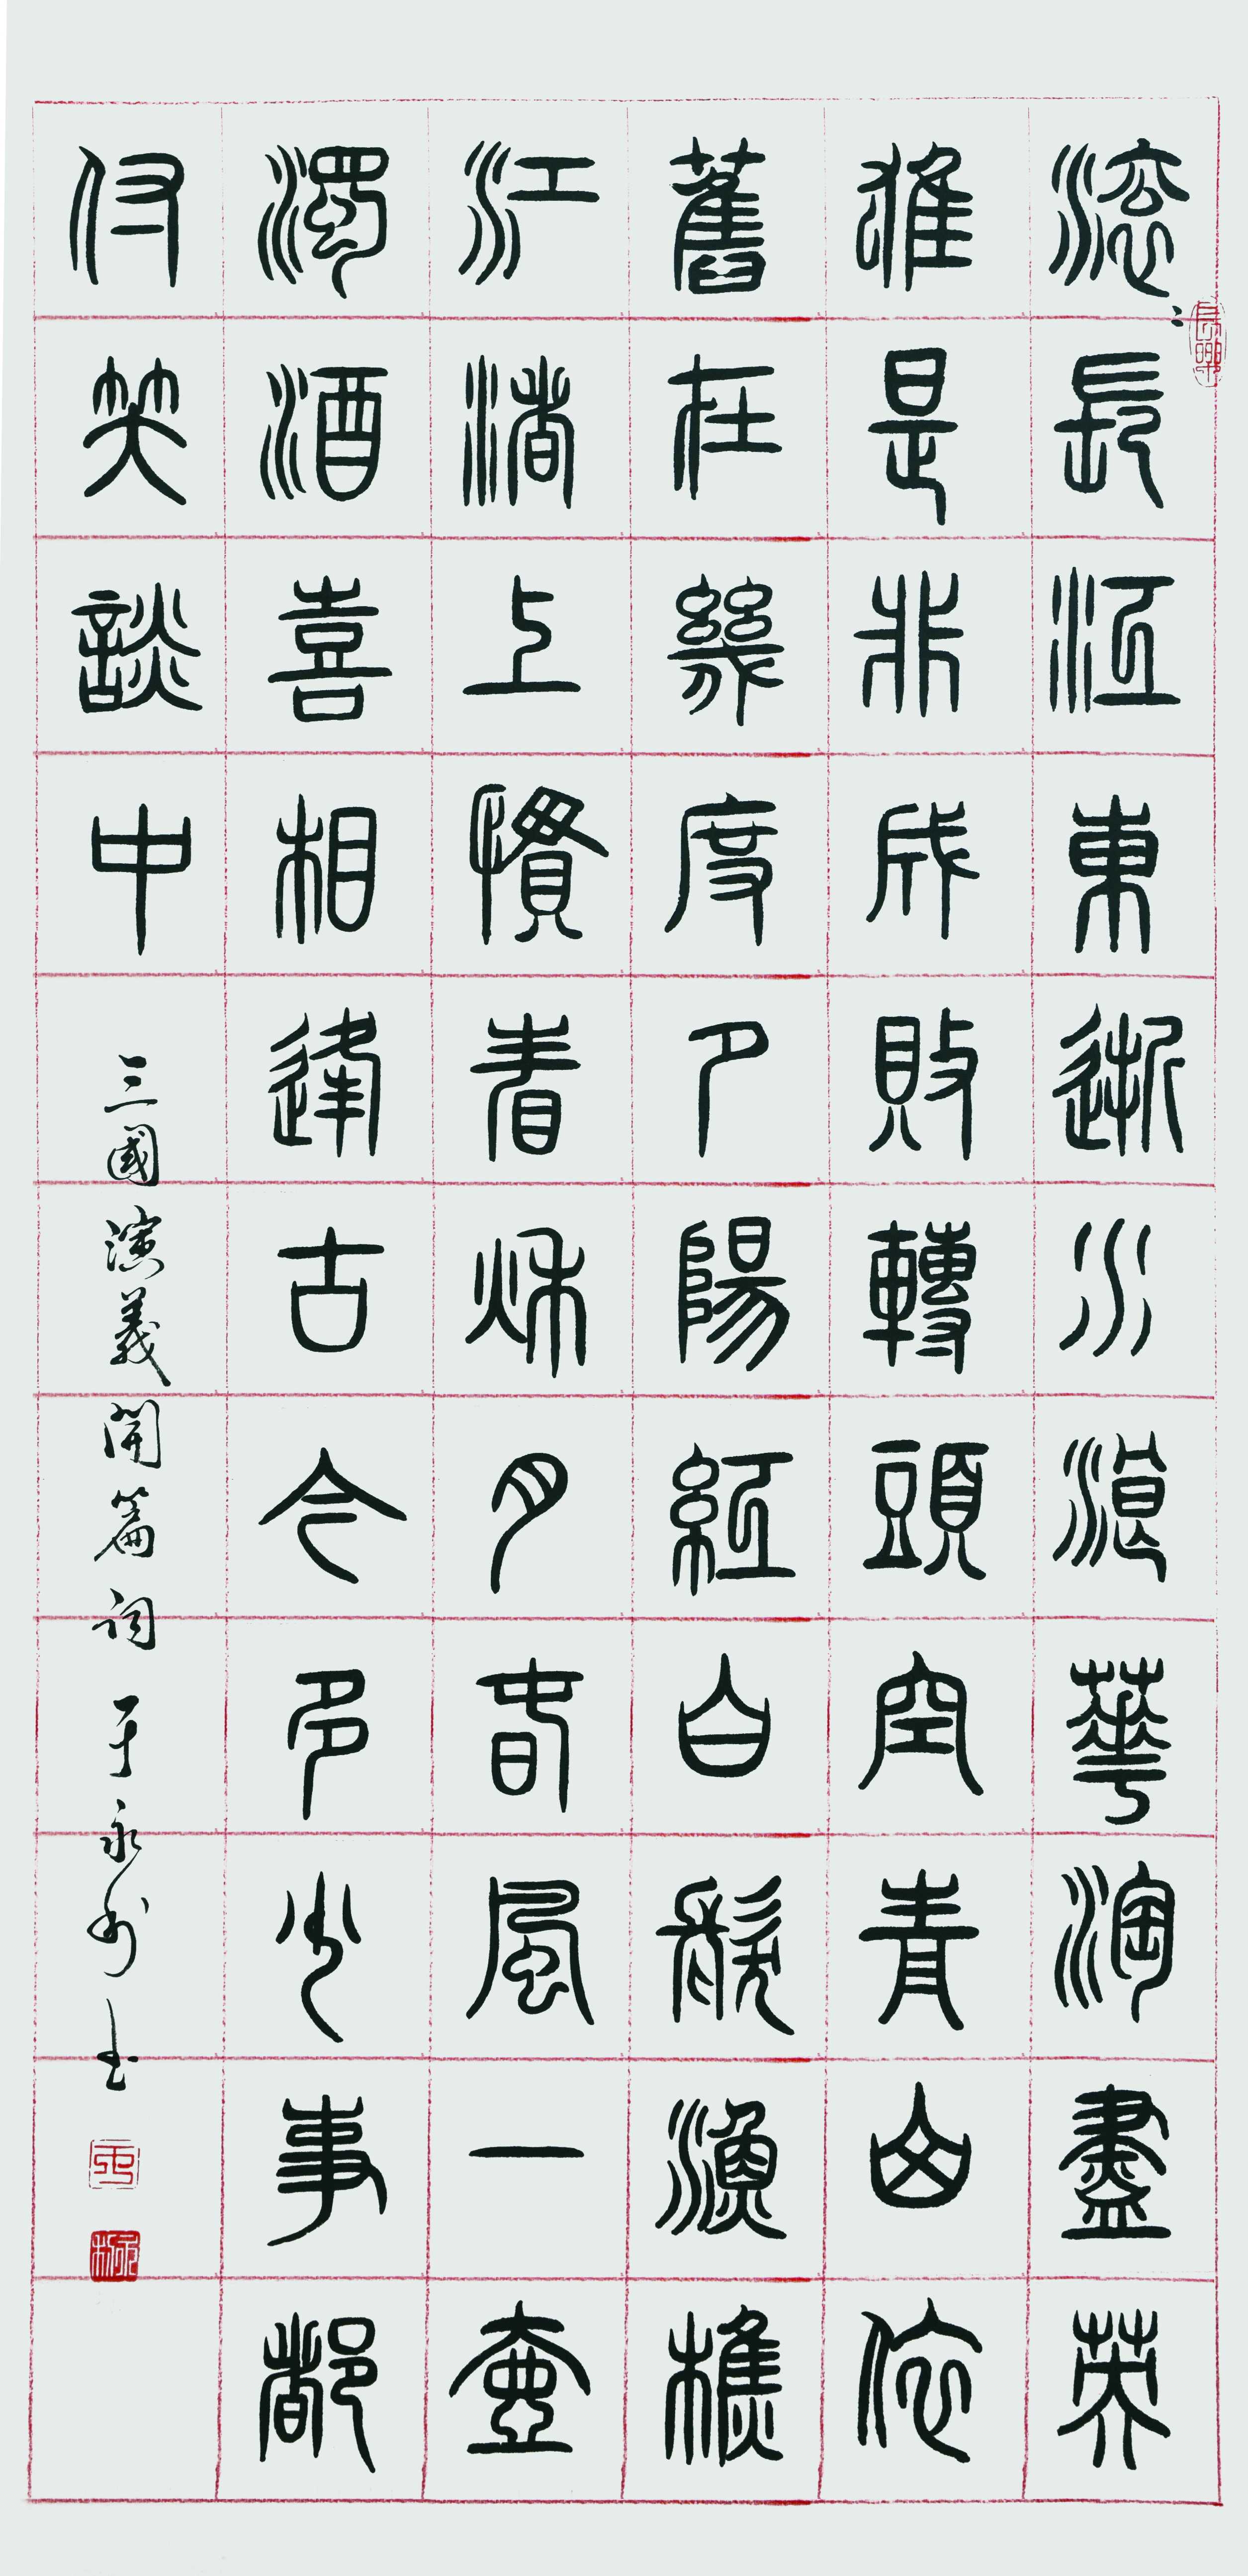 滾〻長江東逝水浪華淘盡英
雄是非成敗轉頭空青山依
舊在幾度夕陽紅白髮漁樵
江渚上慣看秋月春風一壺
濁酒喜相逢古今多少事都
付笑談中
三國演義開篇詞于永州书
長樂